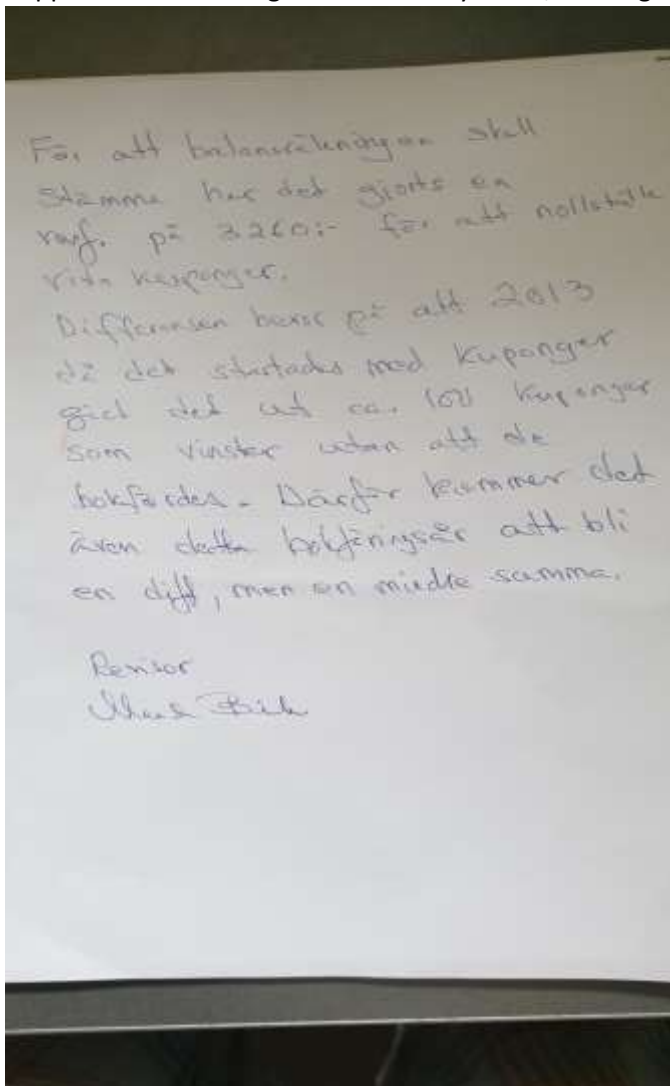 För att balansräkningen skall
stämma har det gjorts en
på 3260:- för att nollställa
vita kuponger.
Differensen beror på att 2013
då det startades med kuponger
gick det ut ca. kuponger
som vinster utan att de
bokfördes. Därför kommer det
även detta bokföringsår att bli
en diff, men en mindre summa.
Revisor